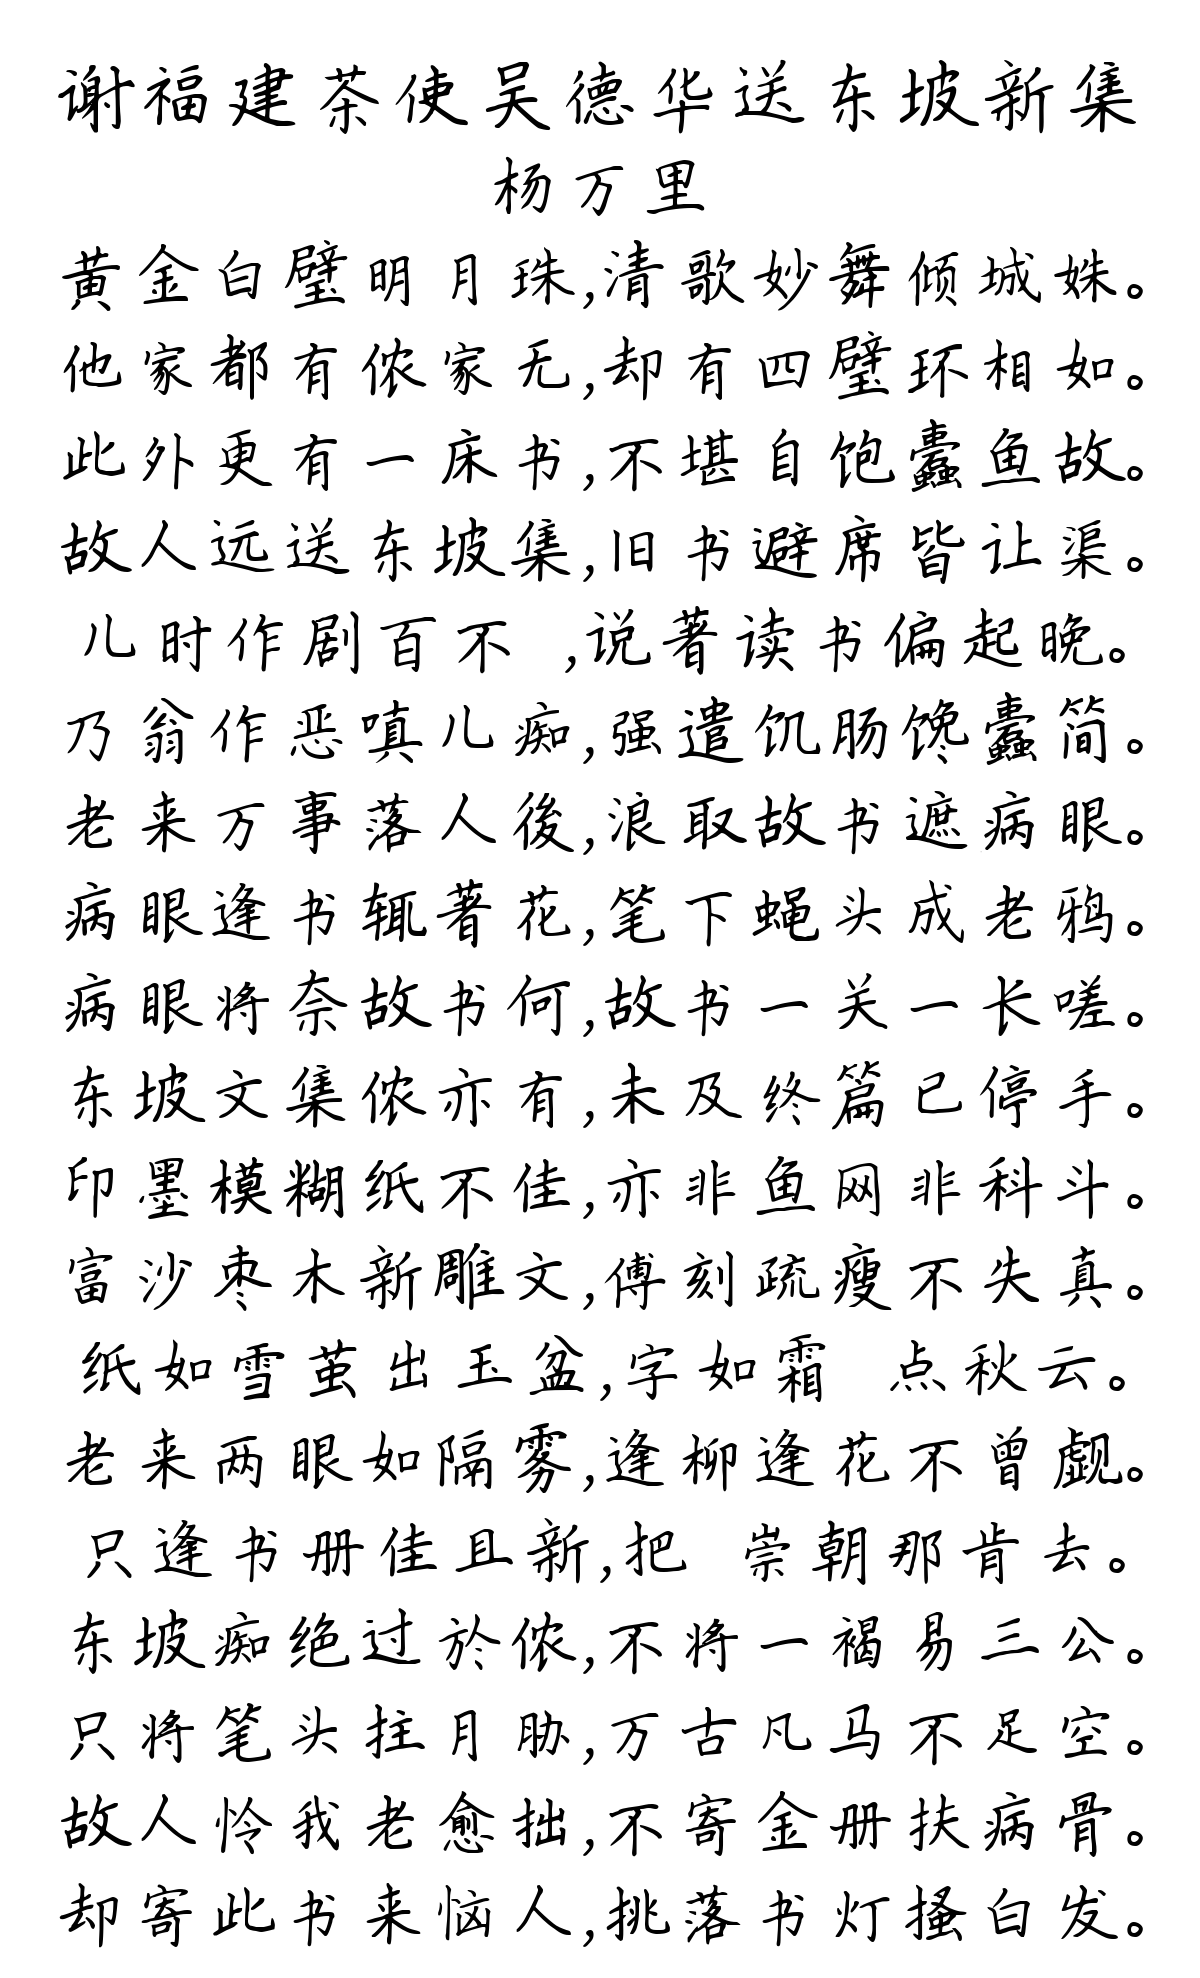 谢福建茶使吴德华送东坡新集
杨万里
黄金白璧明月珠,清歌妙舞倾城姝。
他家都有侬家无,却有四壁环相如。
此外更有一床书,不堪自饱蠹鱼故。
故人远送东坡集,旧书避席皆让渠。
儿时作剧百不 ,说著读书偏起晚。
乃翁作恶嗔儿痴,强遣饥肠馋蠹简。
老来万事落人後,浪取故书遮病眼。
病眼逢书辄著花,笔下蝇头成老鸦。
病眼将奈故书何,故书一关一长嗟。
东坡文集侬亦有,未及终篇已停手。
印墨模糊纸不佳,亦非鱼网非科斗。
富沙枣木新雕文,傅刻疏瘦不失真。
纸如雪茧出玉盆,字如霜 点秋云。
老来两眼如隔雾,逢柳逢花不曾觑。
只逢书册佳且新,把 崇朝那肯去。
东坡痴绝过於侬,不将一褐易三公。
只将笔头拄月胁,万古凡马不足空。
故人怜我老愈拙,不寄金册扶病骨。
却寄此书来恼人,挑落书灯搔白发。